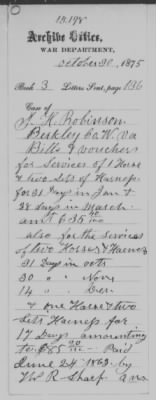 Archive Office,
WAR DEPARTMENT,
October 30, 1875
Book 3 Letters Sent, page 136
Case of
J. K. Robinson
Berkley Co W. Va
Bills & vouchers
for Services of 1 Horse
& two Sets of Harness
for 31 days in Jan &
28 days in March
amt $ 35
also for the Services
of two Horses & Harness
31 Days in Oct.
30 " " Nov.
14 " " Dec
& one Horse & two
Sets Harness for
17 Days amounting
to $85 20/100 Paid
June 24 1862 by
Th. R. Sharp